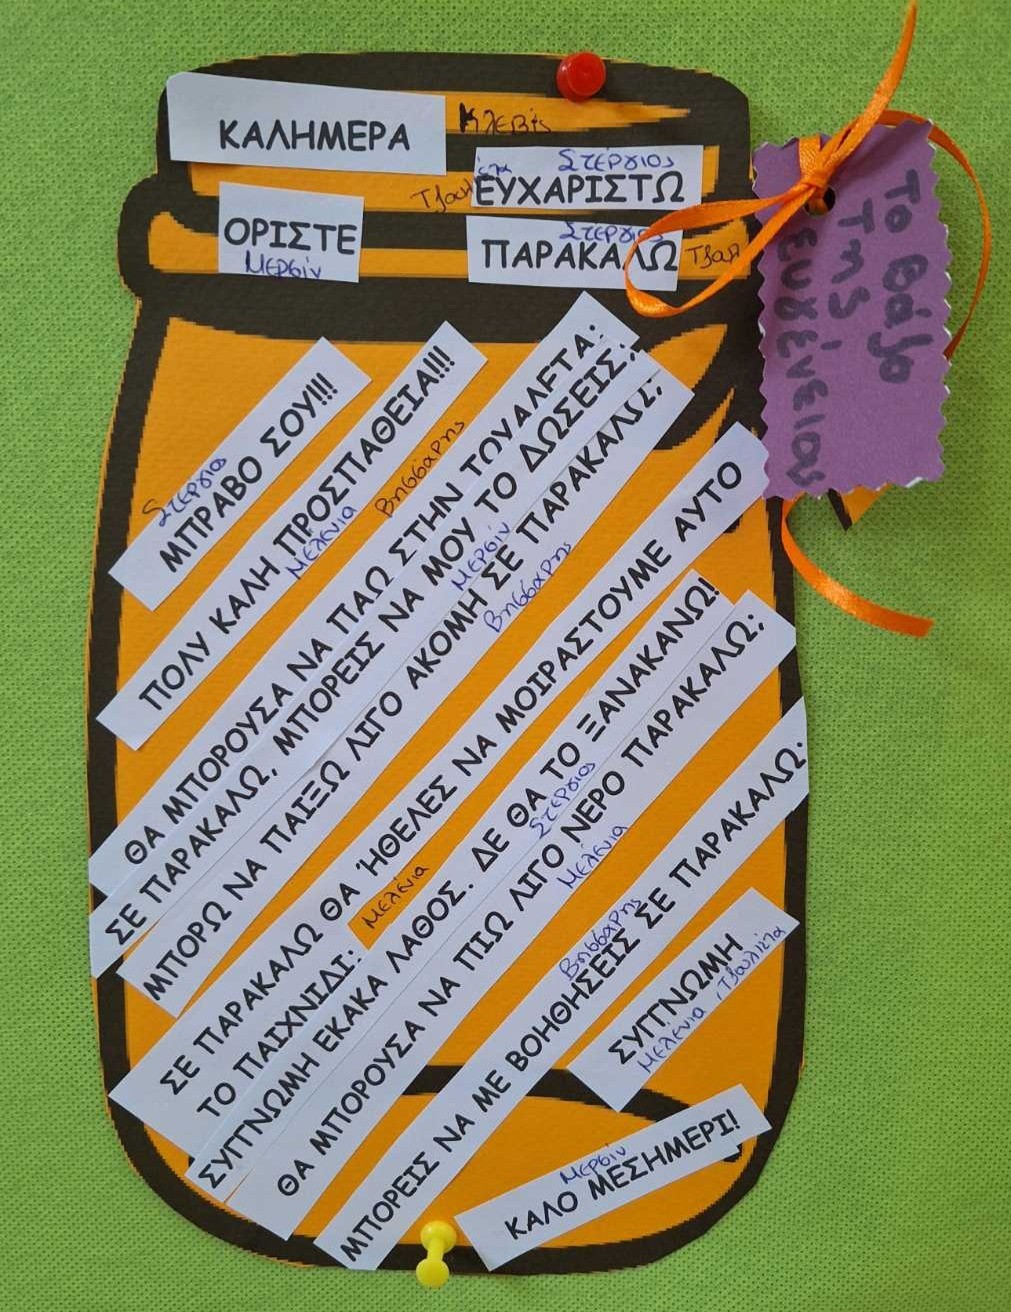 ΚΑΛΗΜΕΡΑ
Κλεβίς
Στέργιος
ΕΥΧΑΡΙΣΤΩ
ΟΡΙΣΤΕ
Μερσίν
Στέργιος
ΠΑΡΑΚΑΛΩ
Το βάζο
της
ευγένειας
Στέργιος
ΜΠΡΑΒΟ ΣΟΥ!!!
ΠΟΛΥ ΚΑΛΗ ΠΡΟΣΠΑΘΕΙΑ!!!
Μελένια
Βησσάρης
ΘΑ ΜΠΟΡΟΥΣΑ ΝΑ ΠΑΩ ΣΤΗΝ ΤΟΥΑΛΕΤΑ;
ΣΕ ΠΑΡΑΚΑΛΩ, ΜΠΟΡΕΙΣ ΝΑ ΜΟΥ ΤΟ ΔΩΣΕΙΣ;
Μερσίν
ΜΠΟΡΩ ΝΑ ΠΑΙΞΩ ΛΙΓΟ ΑΚΟΜΗ ΣΕ ΠΑΡΑΚΑΛΩ;
Βησσάρης
ΣΕ ΠΑΡΑΚΑΛΩ ΘΑ ΉΘΕΛΕΣ ΝΑ ΜΟΙΡΑΣΤΟΥΜΕ ΑΥΤΟ
ΤΟ ΠΑΙΧΝΙΔΙ;
Μελένια
ΣΥΓΓΝΩΜΗ ΕΚΑΚΑ ΛΑΘΟΣ. ΔΕ ΘΑ ΤΟ ΞΑΝΑΚΑΝΩ!
Στέργιος
ΘΑ ΜΠΟΡΟΥΣΑ ΝΑ ΠΙΩ ΛΙΓΟ ΝΕΡΟ ΠΑΡΑΚΑΛΩ;
Μελένια
Βησσάρης
ΜΠΟΡΕΙΣ ΝΑ ΜΕ ΒΟΗΘΗΣΕΙΣ ΣΕ ΠΑΡΑΚΑΛΩ.
ΣΥΓΓΝΩΜΗ
Μελένια, Τζουλιέτα
Μερσίν
ΚΑΛΟ ΜΕΣΗΜΕΡΙ!